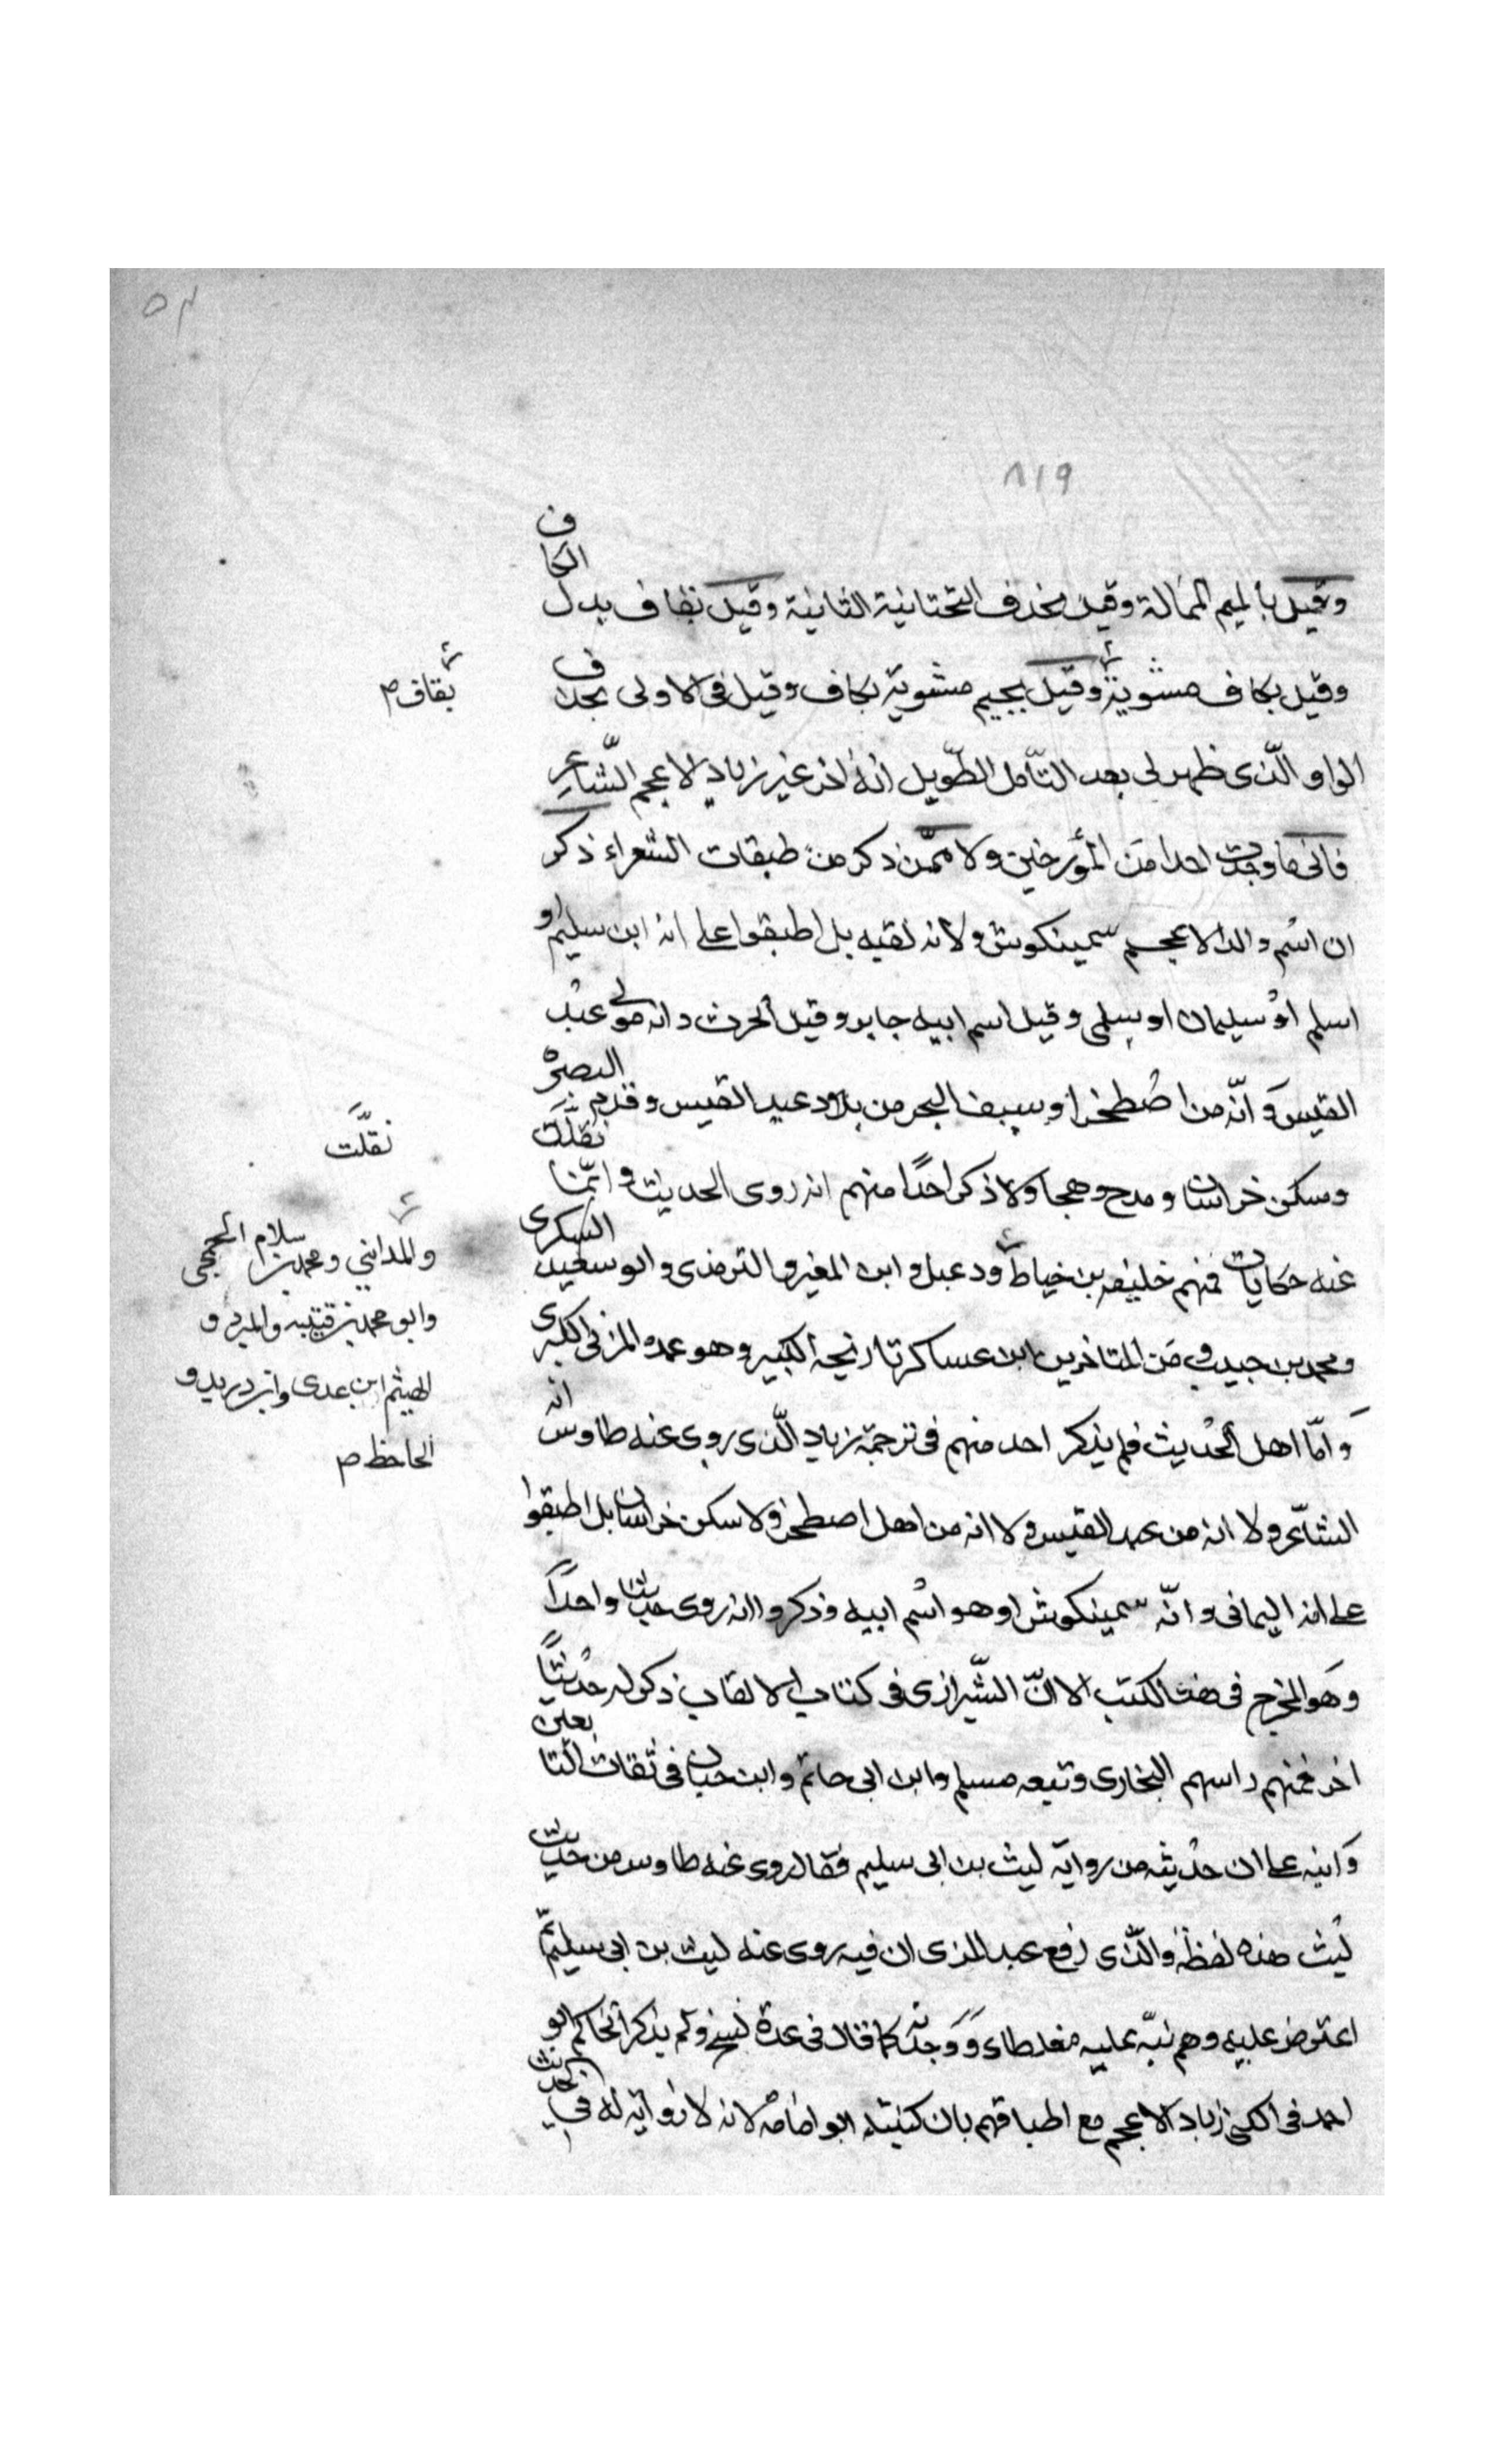 ٥٣
٨١٩
وقيل بالميم الممالة وقيل بحذف التحتانية الثانية وقيل بقاف بدل الكاف
وقيل بكاف مشوبة وقيل بجيم مشوبة بكاف وقيل فى الاولى بحذف
بقاف م
الواو والّذى ظهر لى بعد التأمل الطّويل انه اخر غير زياد الاعجم الشّاعر
فانى ما وجدت احدا من المؤرخين ولا ممّن ذكر من طبقات الشعراء ذكر
ان اسم والد الاعجم سيمينكوش ولا انه لقبه بل اطبقوا على انه ابن سليم او
اسلم اوْ سليمان او سلمى وقيل اسم ابيه جابر وقيل الحرث وانه مولى عبْد
القيس وَ انّه من اصْطخر او سيف البحر من بلاد عبد القيس وقدم البصرة
وسكن خراسان ومدح وهجا ولا ذكر احدًا منهم انه روى الحديث و انّما نقلت
نقلَّت
عنه حكايات فمنهم خليفه بن خياط ودعبل و ابن المغيره والترمذى و ابو سعيد السكرى
والمدايني ومحمد بن سلام الجمحى
وابو محمد بن قتيبه والمبرد و
الهيثم ابن عدى وابن دريد و
الجاحظ م
ومحمد بن حبيب و من المتاخرين ابن عساكر تاريخه الكبير وهو عمدة المزى الكبرى
وَ امّا اهل الحْديث فلم يذكر احد منهم فى ترجمة زياد الّذى روى عنه طاوس انه
الشاعر ولا انه من عبد القيس ولا انه من اهل اصطخر ولا سكن خراسان بل اطبقوا
على انه اليمانى و انّه سيمينكوش او هو اسْم ابيه وذكروا انه روى حديثا واحدًا
وهَو المخرج فى هذه الكتب الا انّ الشّيرازى فى كتاب الالقاب ذكر له حدْيثًا
اخر فمنهم راسهم البخارى وتبعه مسلم وابن ابى حاتم وابن حبان فى ثقات التابعين
وَ انبه على ان حدْيثه من رواية ليث بن ابى سليم فقال روى عنه طاوس من حديث
ليْث هذه لفظه والّذى رفع عند المزى ان فيه روى عنه ليث بن ابى سليم ثم
اعترض عليه وهم نبّه عليه مغلطاى وَ وَجدته كما قال فى عدة نسخ ولم يذكر الحاكم ابو
احمد فى الكنى زياد الاعجم مع اطباقهم بان كنيته ابو امامة لانه لا رواية له في الحديث